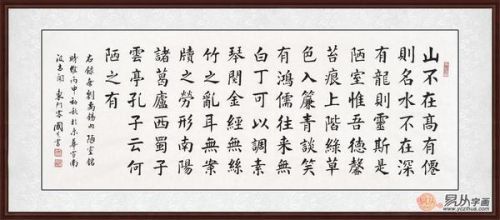 山不在高有僊
則名水不在深
有龍則靈斯是
陋室惟吾德馨
苔痕上階綠草
色入簾青談笑
有鴻儒往來無
白丁可以調素
琴閱金經無絲
竹之亂耳無案
牘之勞形南陽
諸葛廬西蜀子
雲亭孔子云何
陋之有
右錄劉禹錫句陋室銘
時維丙申初秋於京華宣南
汲古閣
易从字画
www.yczihua.com